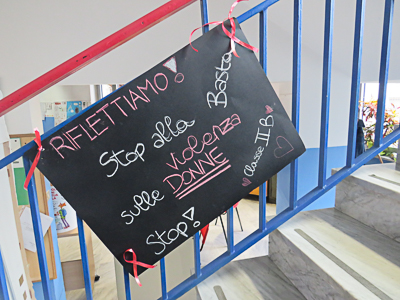 RIFLETTIAMO!
Stop alla
Violenza
sulle DONNE
Stop!
Basta
Classe II B